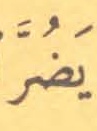 يَضُرَّ